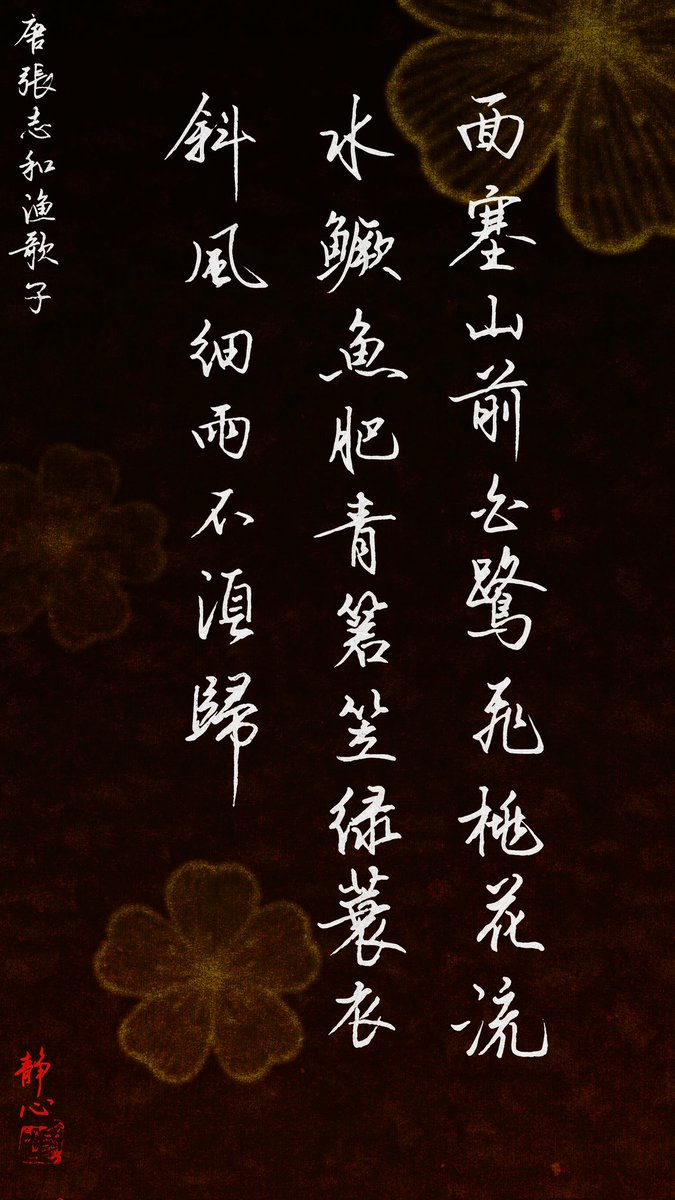 面塞山前白鷺飛桃花流
水鱖魚肥青箬笠緑蓑衣
斜風細雨不湏歸
唐張志和漁歌子
静心